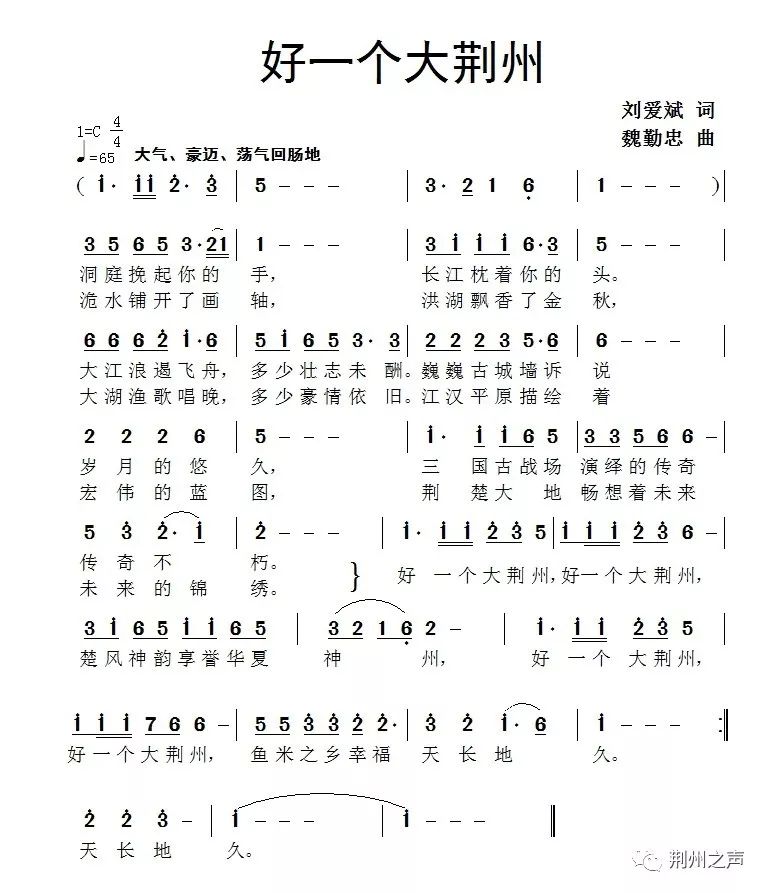 好一个大荆州
刘爱斌 词
1=C 4/4
魏勤忠 曲
♩=65 大气、豪迈、荡气回肠地
( i· i i 2̇· 3̇ | 5 – – – | 3· 2 1 6̣ | 1 – – – )|
3 5 6 5 3· 2 1 | 1 – – – | 3 i i i 6·3 | 5 – – – |
洞庭挽起你的 手， 长江枕着你的 头。
洈水铺开了画 轴， 洪湖飘香了金 秋，
6 6 6 2̇ i·6 | 5 i 6 5 3·3 | 2 2 2 3 5·6 | 6 – – – |
大江浪遏飞舟， 多少壮志未 酬。巍巍古城墙诉 说
大湖渔歌唱晚， 多少豪情依 旧。江汉平原描绘 着
2 2 2 6 | 5 – – – | i· i i 6 5 | 3 3 5 6 6 – |
岁月的悠 久， 三 国古战场 演绎的传奇
宏伟的蓝 图， 荆 楚大 地 畅想着未来
5 3̇ 2̇· i | 2̇ – – – | i· i i 2̇ 3̇ 5 | i i i 2̇ 3̇ 6 – |
传奇不 朽。
未来的锦 绣。 } 好 一个大荆州，好一个大荆州，
3 i 6 5 i i 6 5 | 3 2 1 6̣ 2 – | i· i i 2̇ 3̇ 5 |
楚风神韵享誉华夏 神 州， 好 一个 大荆州，
i i i 7 6 6 – | 5 5 3̇ 3̇ 2̇ 2̇· | 3̇ 2̇ i· 6 | i – – – :‖
好一个大荆州， 鱼米之乡幸福 天长地 久。
2̇ 2̇ 3̇ – | i – – – | i – – – ‖
天长地 久。
荆州之声